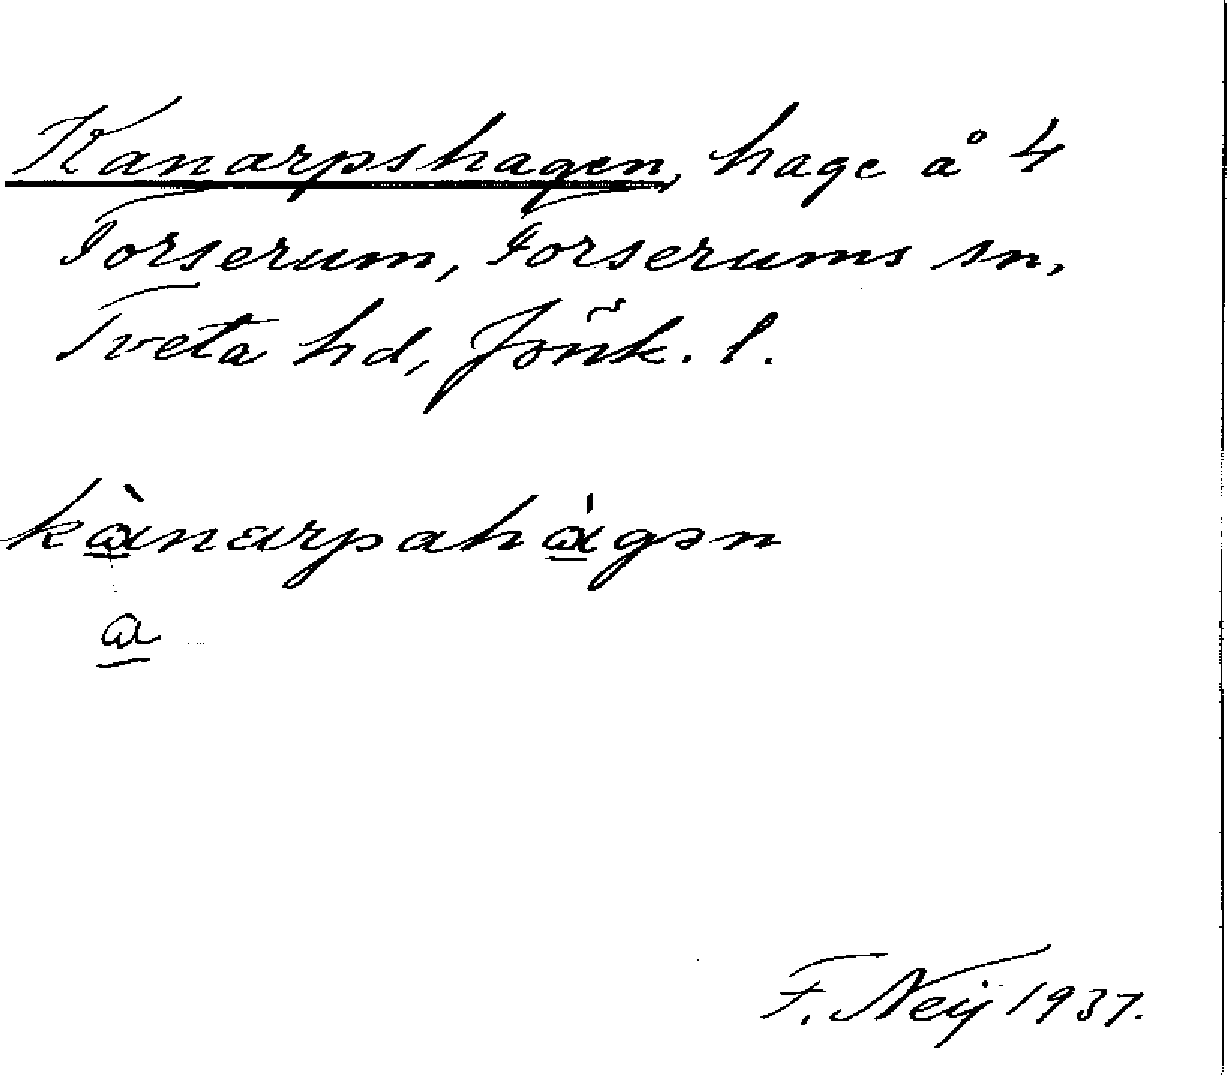 Kanarpshagen, hage å 4
Forserum, Forserums sn,
Tveta hd, Jönk. l.
kа̀narpahа́gən
a
F. Neij 1937.